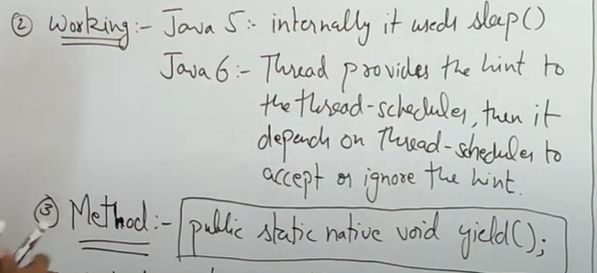 ② Working:- Java 5:- internally it uses sleep()
Java 6:- Thread provides the hint to
the thread-scheduler, then it
depends on Thread-scheduler to
accept or ignore the hint.
③ Method:- public static native void yield();